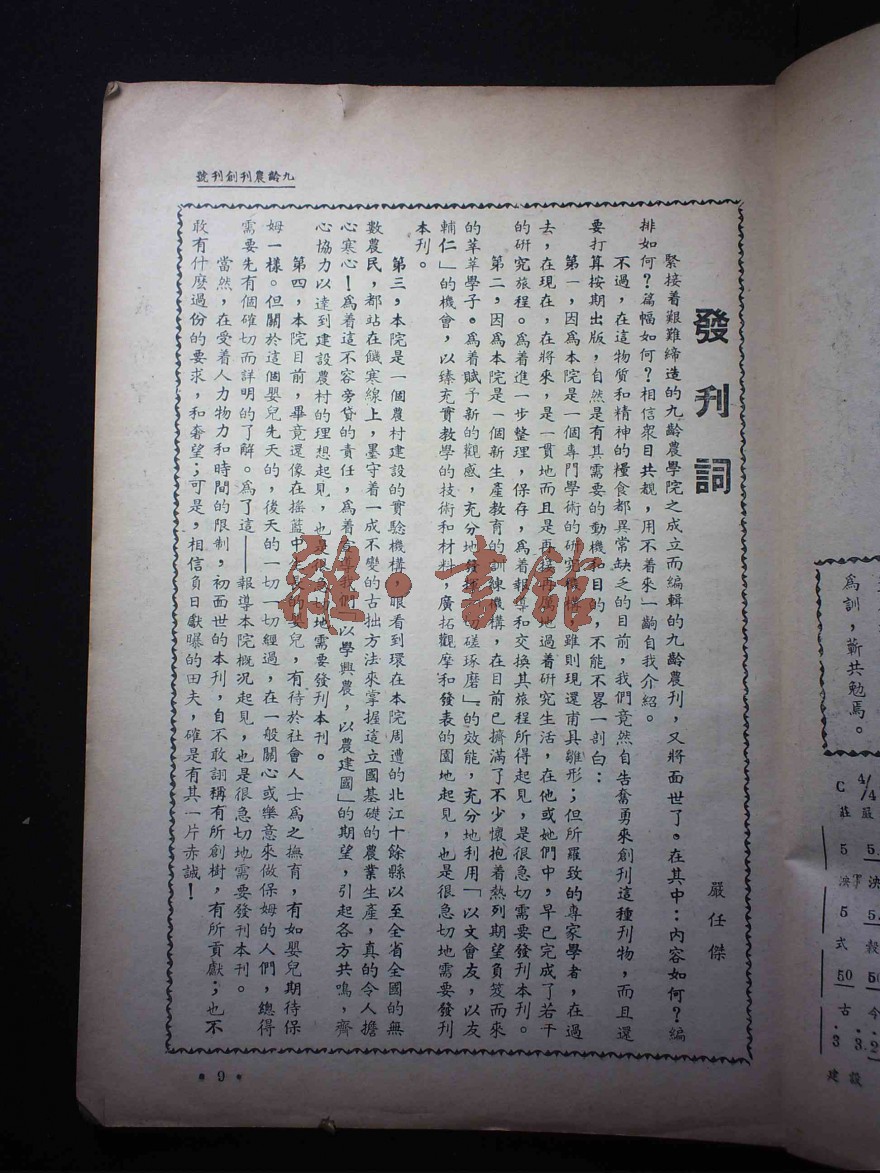 九齡農刊創刊號
發刊詞
嚴任傑
緊接着艱難締造的九齡農學院之成立而編輯的九齡農刊,又將面世了。在其中:內容如何?編
排如何?篇幅如何?相信衆目共覩,用不着來一齣自我介紹。
不過,在這物質和精神的糧食都異常缺乏的目前,我們竟然自告奮勇來創刊這種刊物,而且還
要打算按期出版,自然是有其需要的動機和目的,不能不畧一剖白:
第一,因爲本院是一個專門學術的研究機構,雖則現還甫具雛形;但所羅致的專家學者,在過
去,在現在,在將來,是一貫地而且是再接再厲地過着研究生活,在他或她們中,早已完成了若干
的研究旅程。爲着進一步整理,保存,爲着報導和交換其旅程所得起見,是很急切需要發刊本刊。
第二,因爲本院是一個新生產教育的訓練機構,在目前已擠滿了不少懷抱着熱烈期望負笈而來
的莘莘學子。爲着賦予新的觀感,充分地發揮「切磋琢磨」的效能,充分地利用「以文會友,以友
輔仁」的機會,以臻充實教學的技術和材料,廣拓觀摩和發表的園地起見,也是很急切地需要發刊
本刊。
第三,本院是一個農村建設的實驗機構,眼看到環在本院周遭的北江十餘縣以至全省全國的無
數農民,都站在饑寒線上,墨守着一成不變的古拙方法來掌握這立國基礎的農業生產,真的令人擔
心寒心!爲着這不容旁貸的責任,爲着 我們「以學興農,以農建國」的期望,引起各方共鳴,齊
心協力以達到建設農村的理想起見,也是很急切地需要發刊本刊。
第四,本院目前,畢竟還像在搖籃中 的嬰兒,有待於社會人士爲之撫育,有如嬰兒期待保
姆一樣。但關於這個嬰兒先天的,後天的一切一切經過,在一般關心或樂意來做保姆的人們,總得
需要先有個確切而詳明的了解。爲了這——報導本院概況起見,也是很急切地需要發刊本刊。
當然,在受着人力物力和時間的限制,初面世的本刊,自不敢詡稱有所創樹,有所貢獻;也不
敢有什麽過份的要求,和奢望;可是,相信負日獻曝的田夫,確是有其一片赤誠!
•9•
爲訓,蘄共勉焉。
C 4/4
莊嚴
5 5.
泱泱
5 5.
式穀
50 50
古今
3 3.2
建設
雜·書館